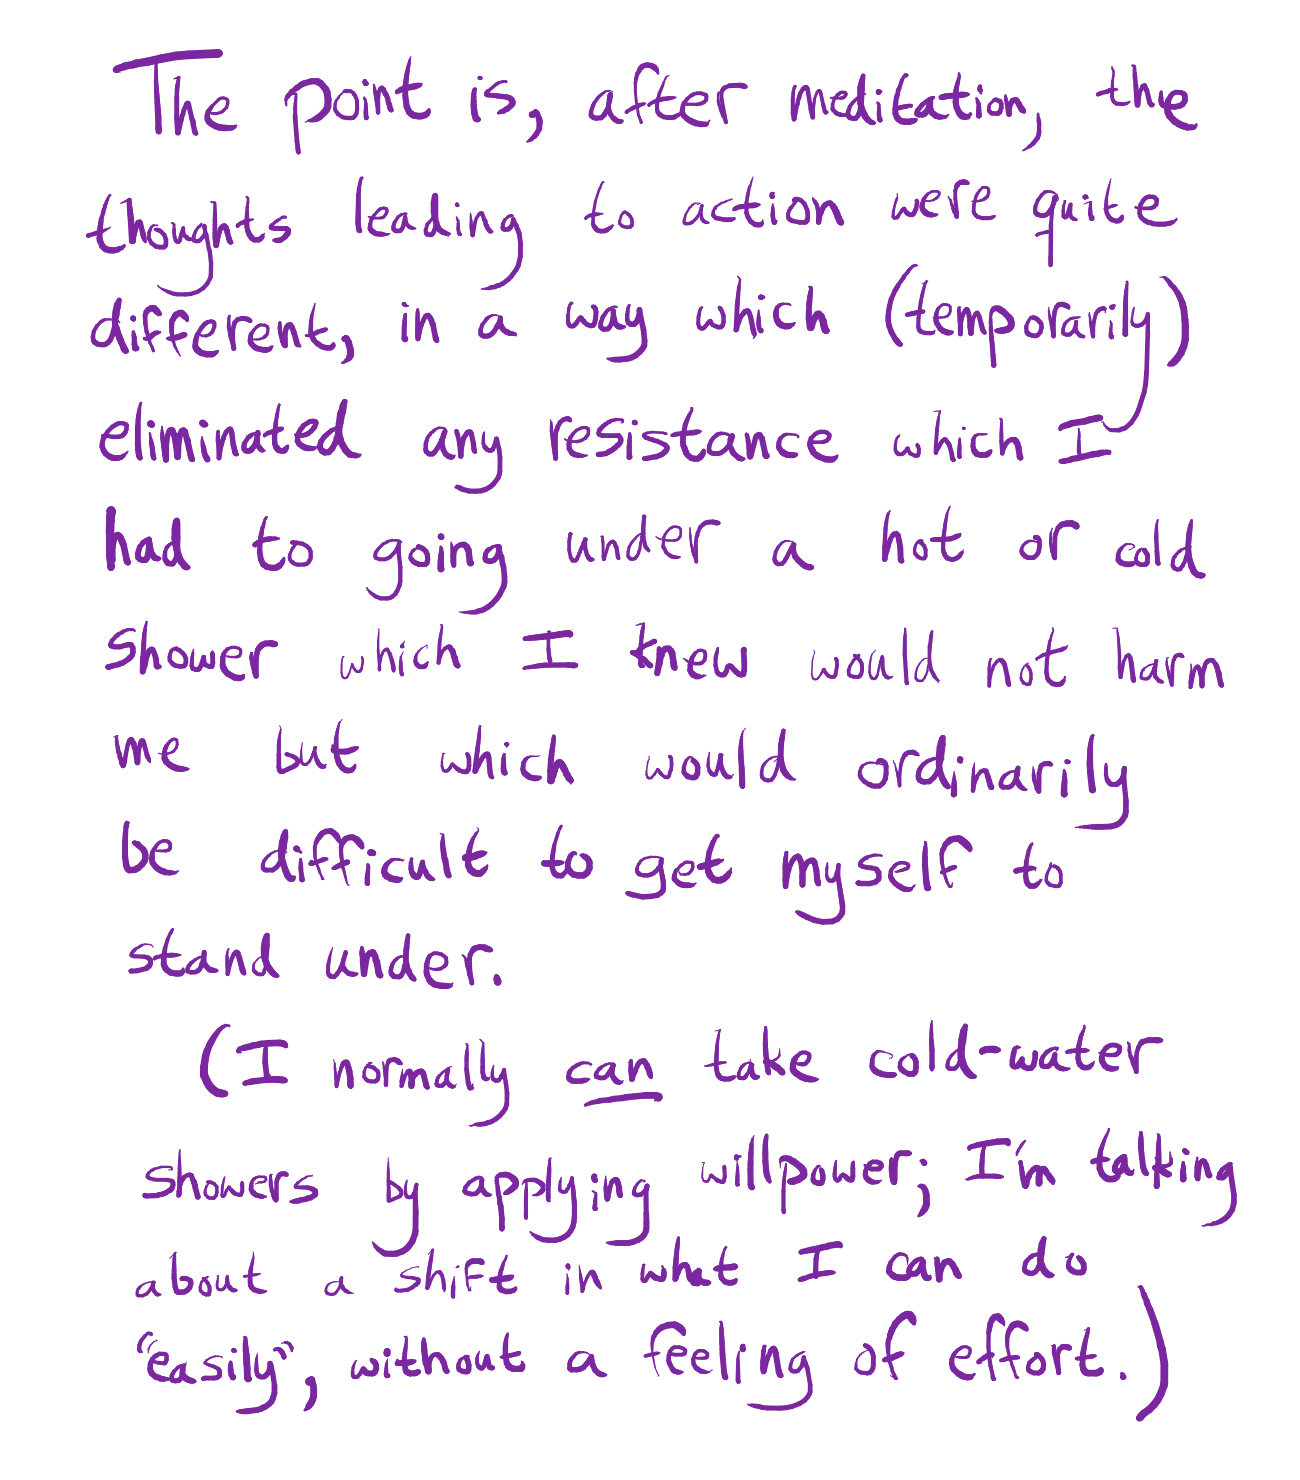 The point is, after meditation, the
thoughts leading to action were quite
different, in a way which (temporarily)
eliminated any resistance which I
had to going under a hot or cold
shower which I knew would not harm
me but which would ordinarily
be difficult to get myself to
stand under.
(I normally can take cold-water
showers by applying willpower; I'm talking
about a shift in what I can do
"easily", without a feeling of effort.)